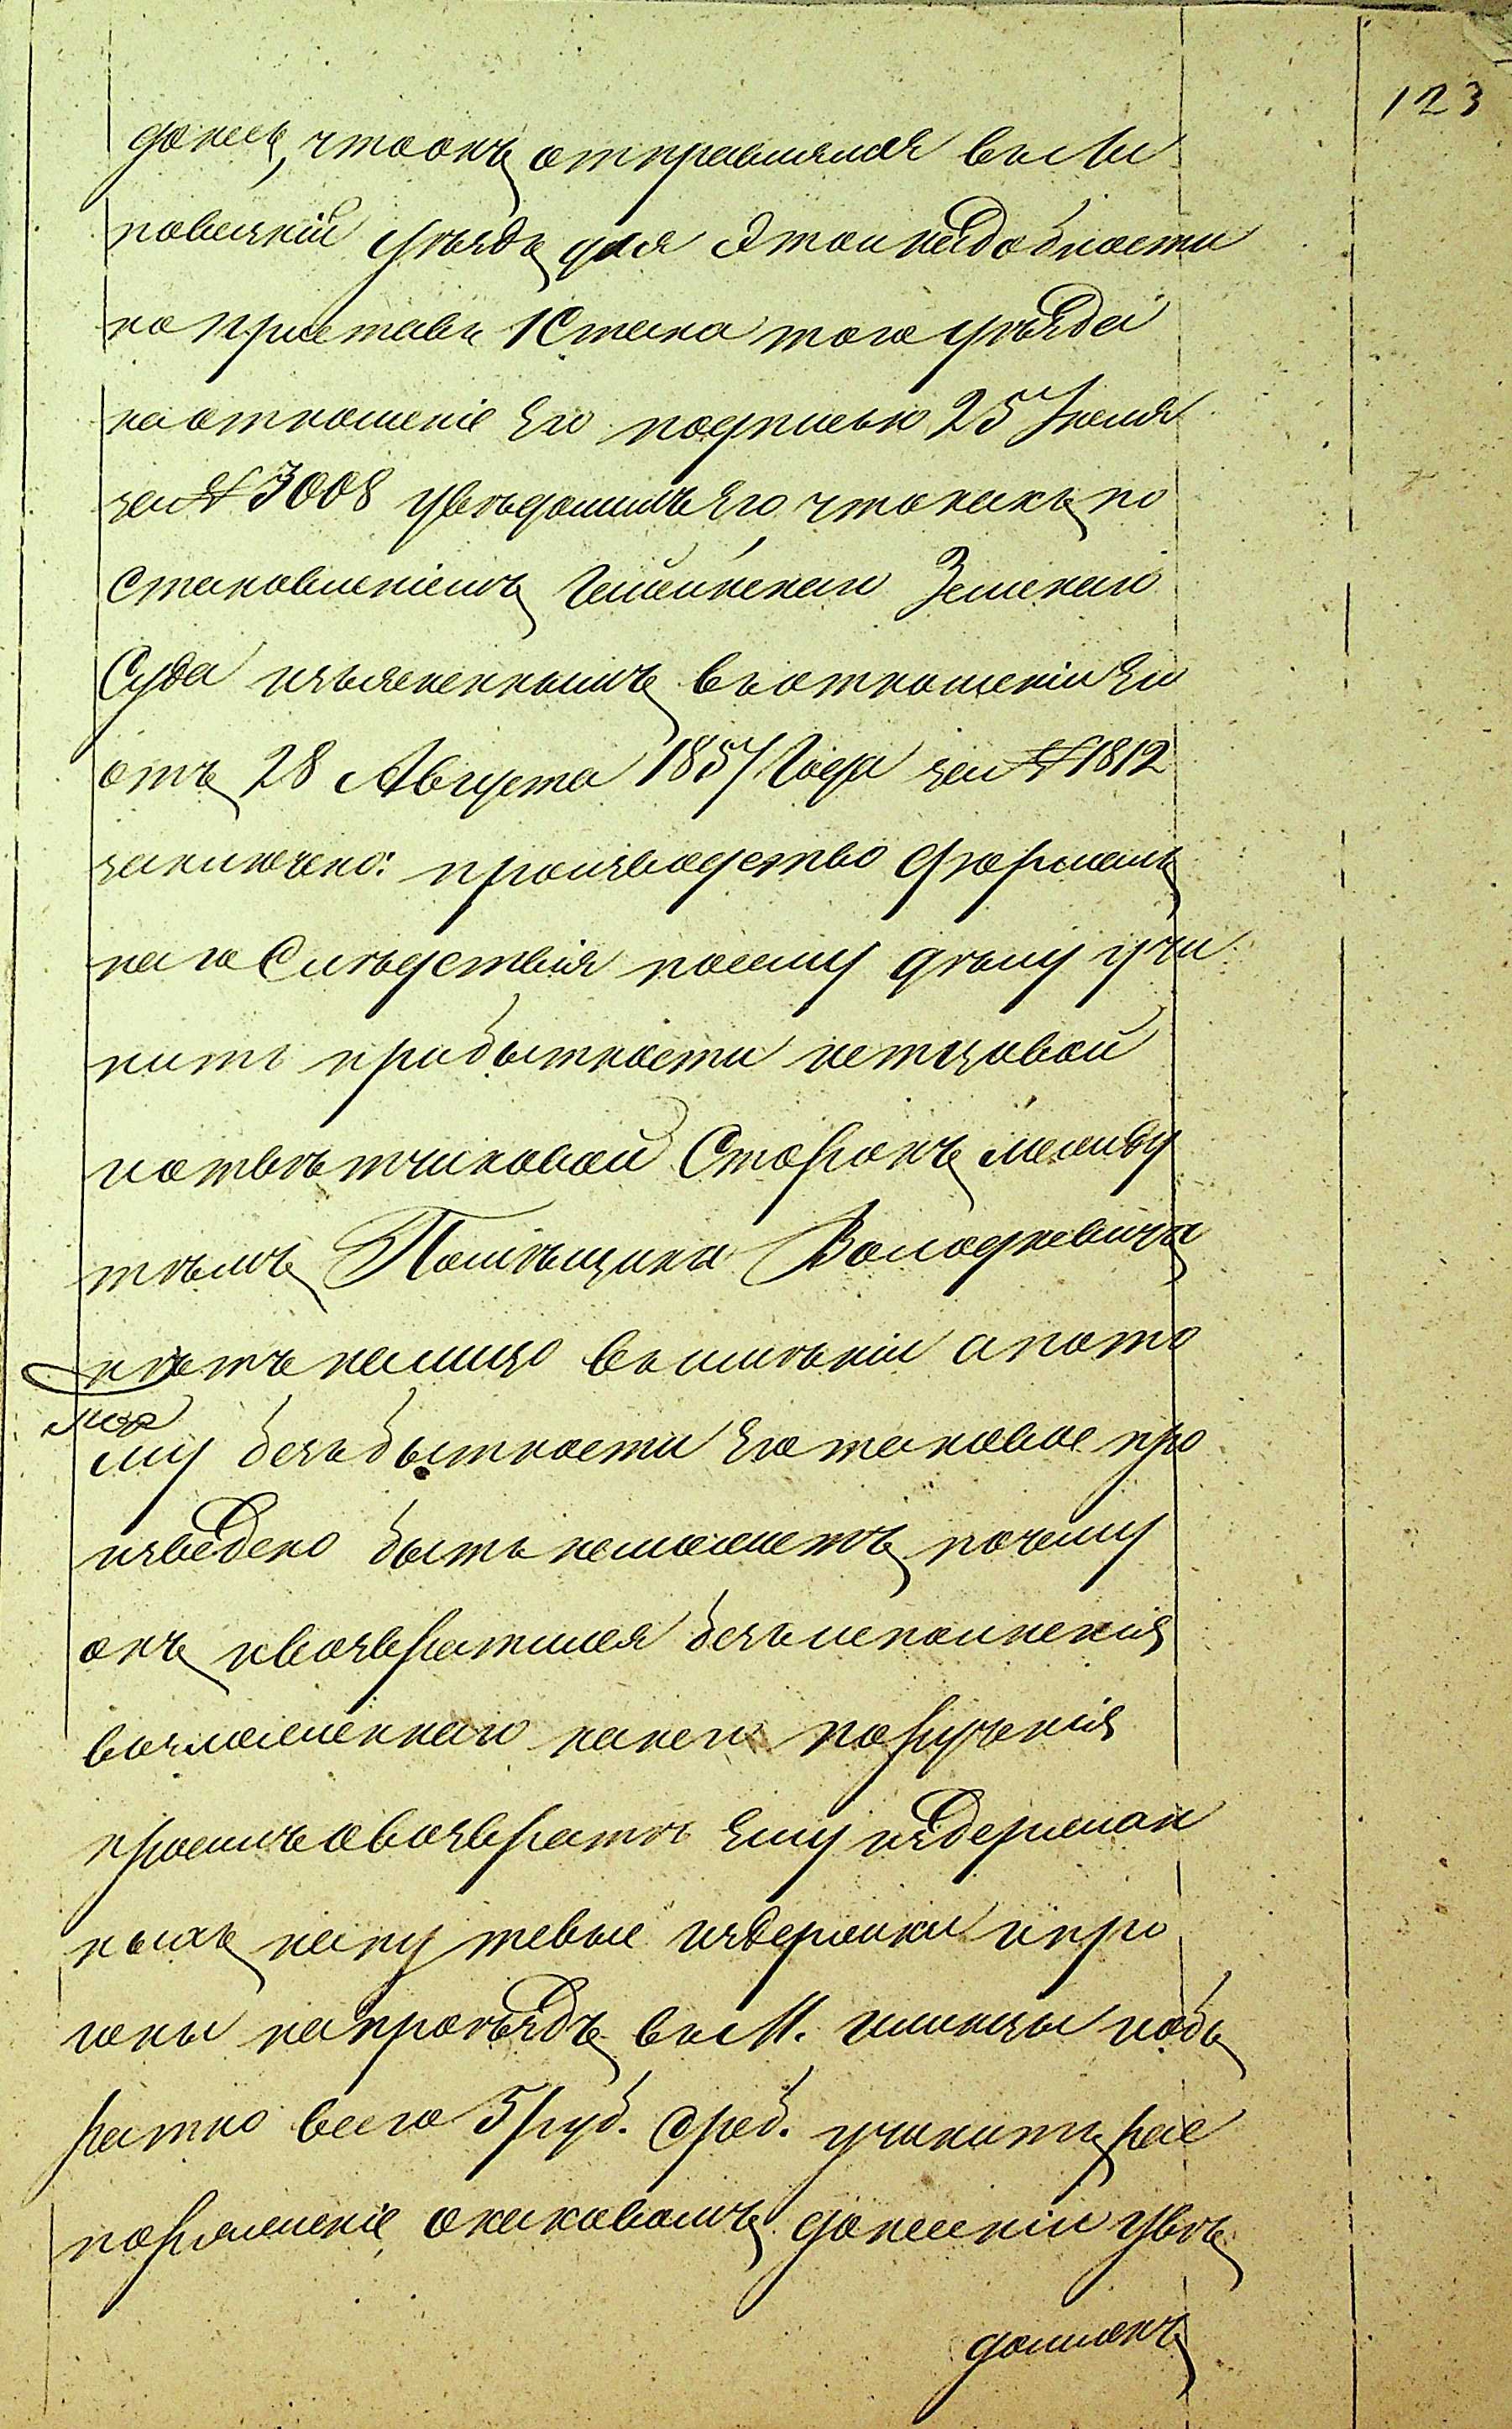 123
донесъ, что онъ отправлялся въ Ли
повецкій уѣздъ для этой надобности
но приставъ 1 Стана того уѣзда
на отношеніе Его подписью 25 Іюля
за № 3008 увѣдомилъ Его, что какъ по
становленіемъ Гайсинскаго Земскаго
Суда изъясненнымъ въ отношеніи Его
отъ 28 Августа 1857 Года за № 1812
заключено: производство формаль
наго Слѣдствія по сему дѣлу учи
нить прибытности истцовой
и отвѣтчиковой Сторонъ, между
тѣмъ Помѣщика Володкевича
нѣтъ на лицо въ имѣніи а пото
му безъ бытности Его таковое про
изведено быть неможетъ, почему
онъ и возвратился безъ исполненія
возложеннаго на него порученія
просилъ о возвратѣ Ему издержан
ныхъ на путевые издержки и про
гоны на проѣздъ въ М. Ильинцы и об
ратно всего 5 руб. Среб. учинить рас
поряженіе, о каковомъ донесеніи увѣ
домленъ